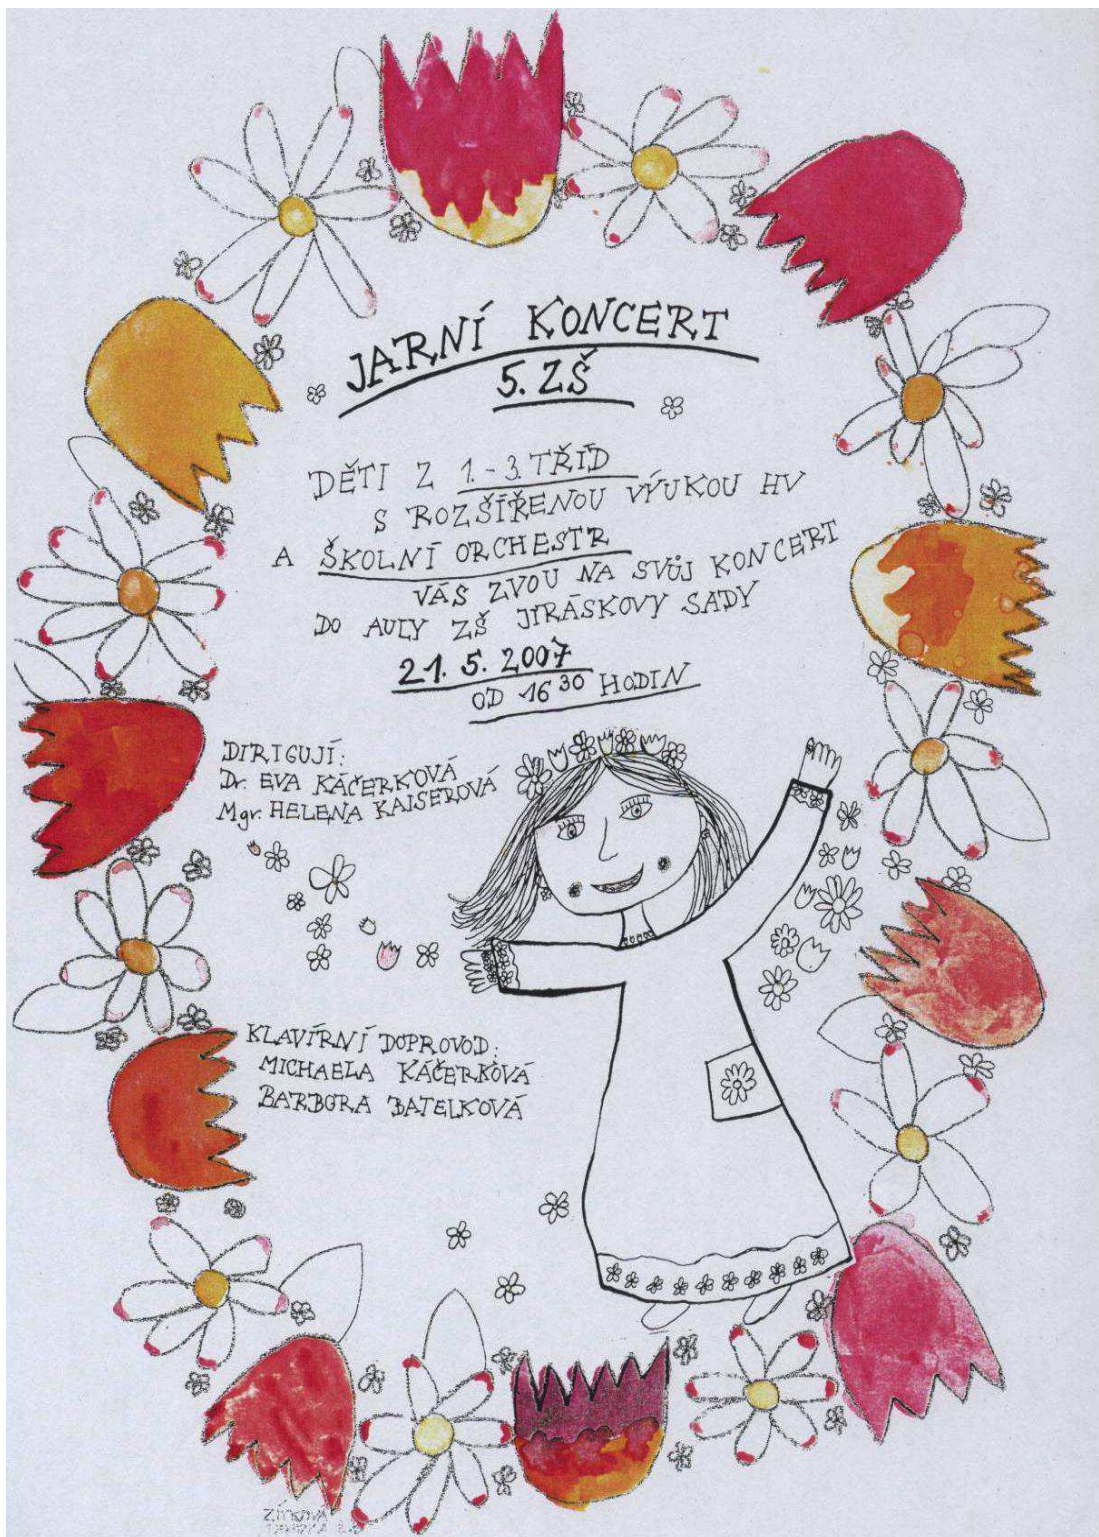 JARNÍ KONCERT
5. ZŠ
DĚTI Z 1.-3. TŘÍD
S ROZŠÍŘENOU VÝUKOU HV
A ŠKOLNÍ ORCHESTR
VÁS ZVOU NA SVŮJ KONCERT
DO AULY ZŠ JIRÁSKOVY SADY
21. 5. 2007
OD 16 30 HODIN
DIRIGUJÍ:
Dr. EVA KÁČERKOVÁ
Mgr. HELENA KAISEROVÁ
KLAVÍRNÍ DOPROVOD:
MICHAELA KÁČERKOVÁ
BARBORA BATELKOVÁ